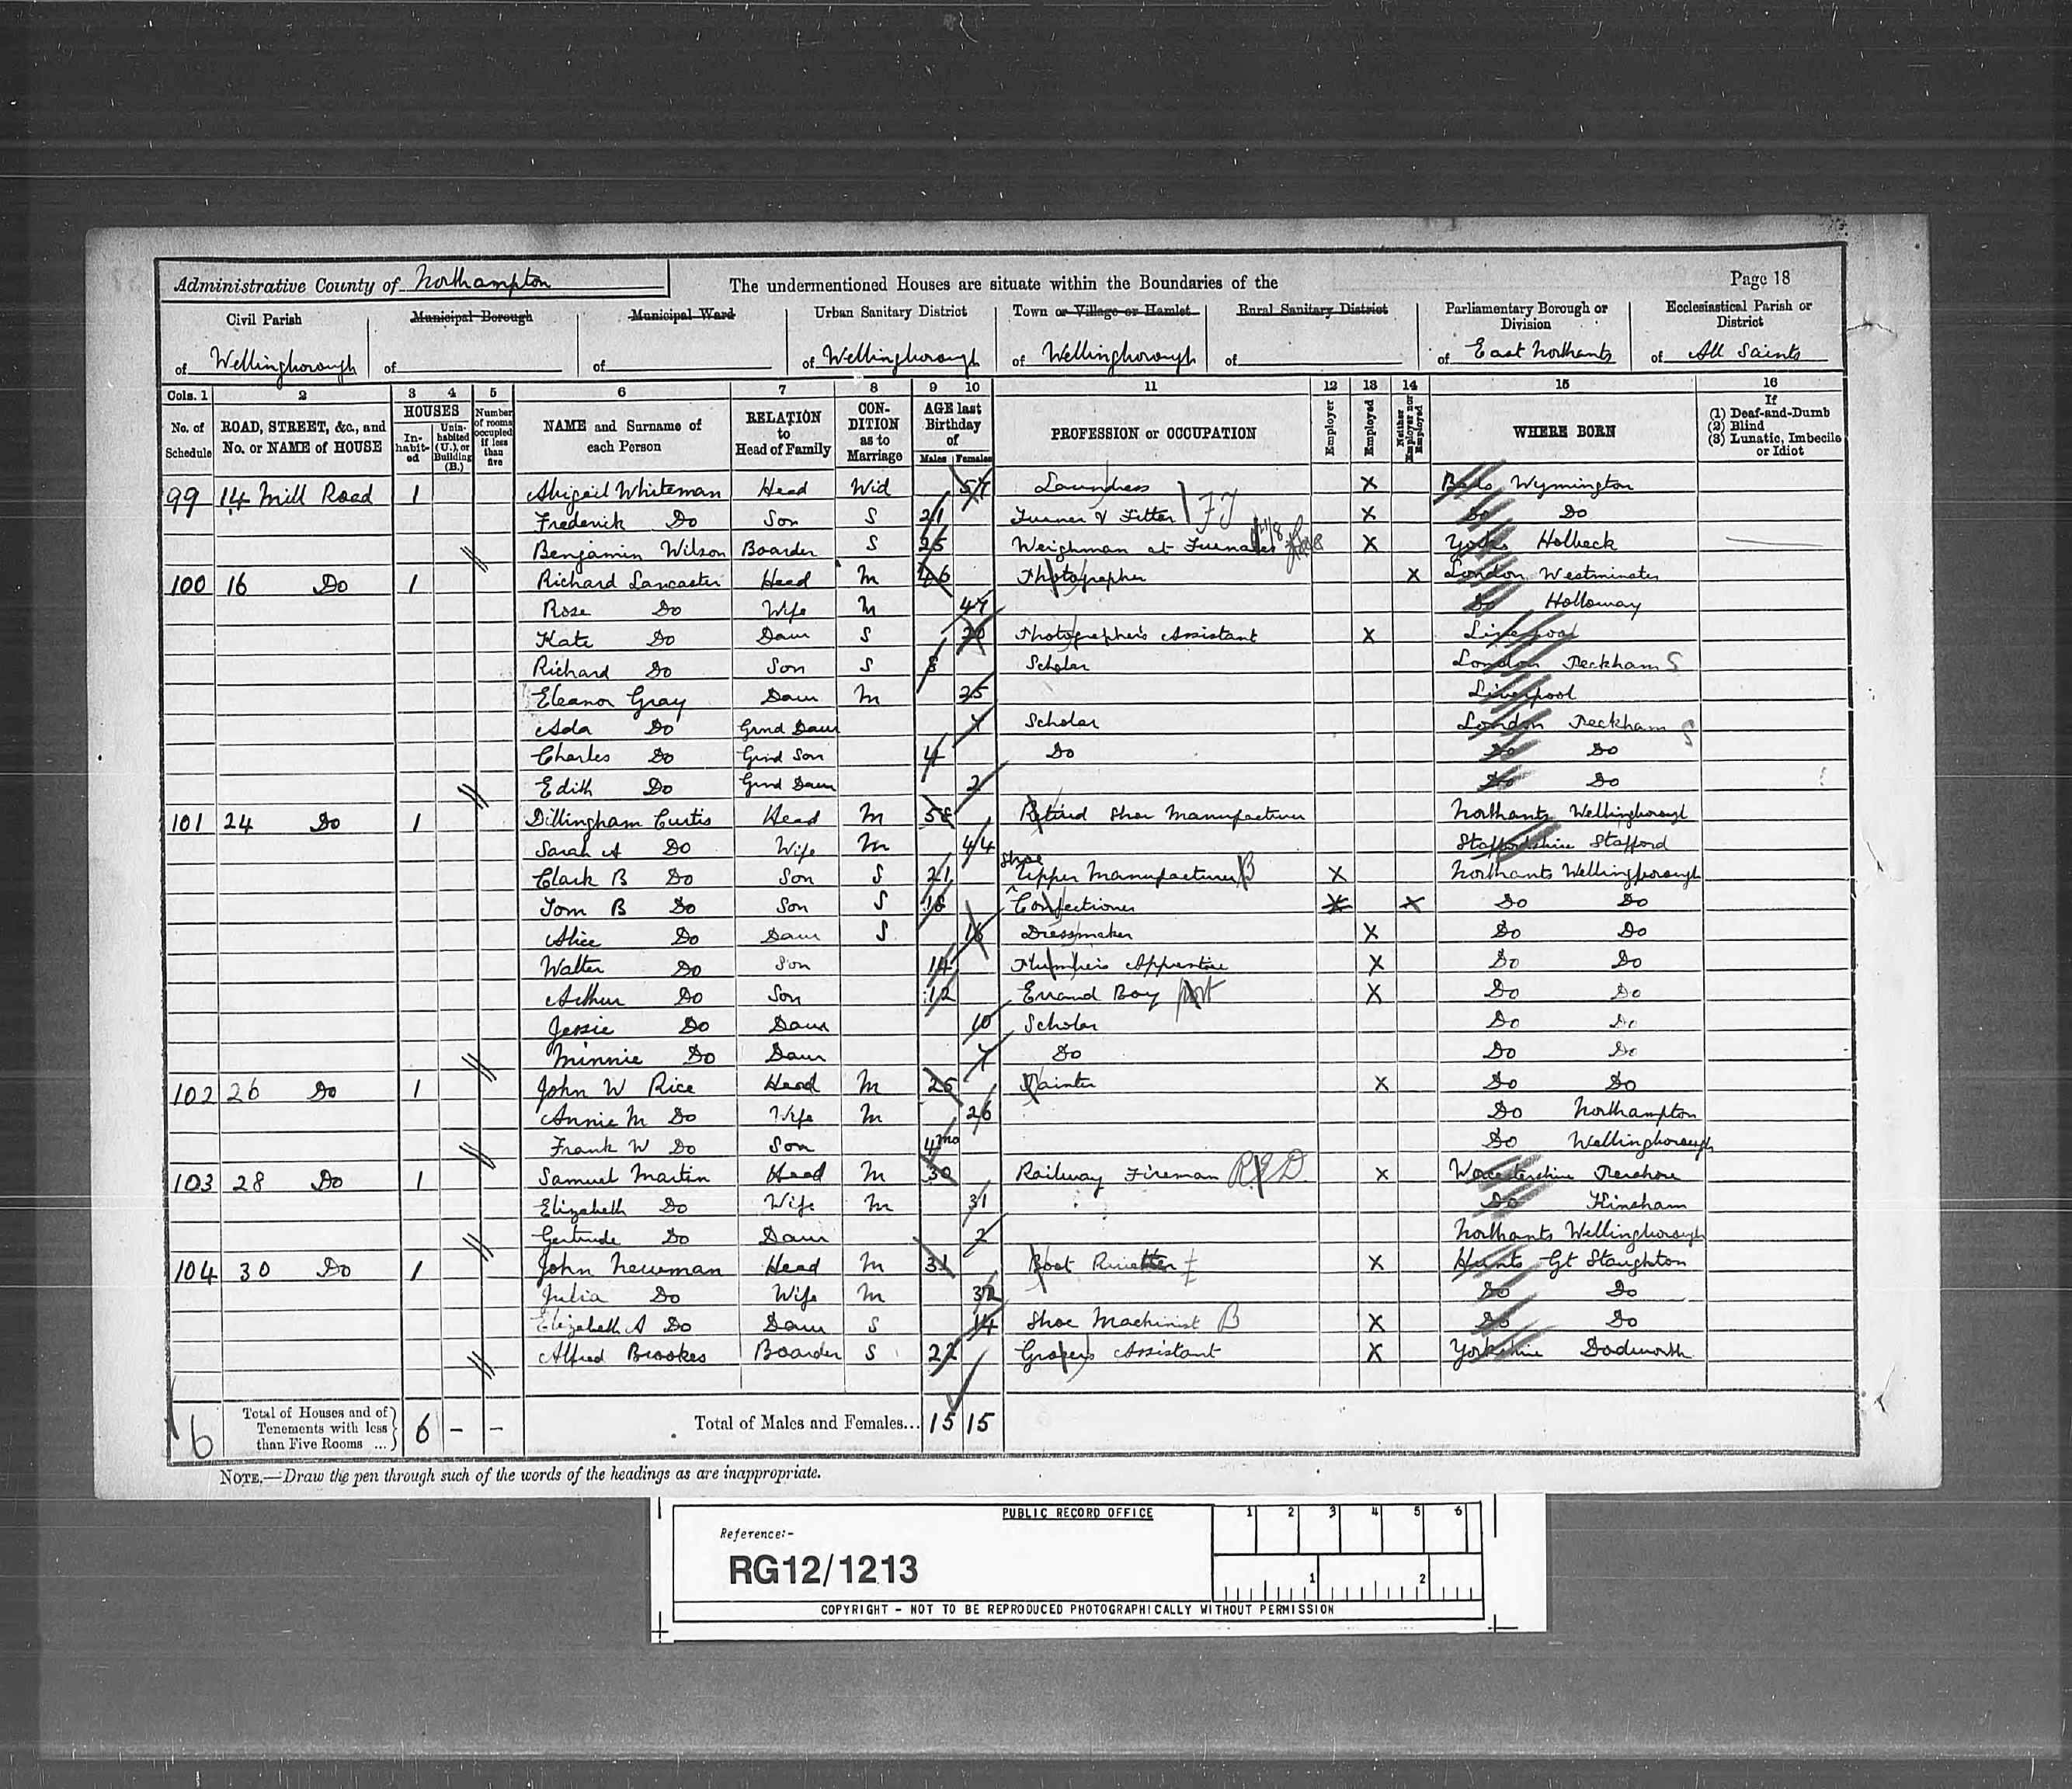 Administrative County of Northampton The undermentioned Houses are situate within the Boundaries of the Page 18
Civil Parish Municipal Borough Municipal Ward Urban Sanitary District Town or Village or Hamlet Rural Sanitary District Parliamentary Borough or Division Ecclesiastical Parish or District
of Wellingborough of of of Wellingborough of Wellingborough of of East Northants of All Saints
Cols. 1 2 3 4 5 6 7 8 9 10 11 12 13 14 15 16
No. of Schedule ROAD, STREET, &c., and No. or NAME of HOUSE HOUSES Inhabited Uninhabited (U.), or Building (B.) Number of rooms occupied if less than five NAME and Surname of each Person RELATION to Head of Family CONDITION as to Marriage AGE last Birthday of Males Females PROFESSION or OCCUPATION Employer Employed Neither Employer nor Employed WHERE BORN If (1) Deaf-and-Dumb (2) Blind (3) Lunatic, Imbecile or Idiot
99 14 Mill Road 1 Abigail Whiteman Head Wid 57 Laundress X Beds Wymington
Frederick Do Son S 21 Turner & Fitter FJ X Do Do
Benjamin Wilson Boarder S 25 Weighman at Furnaces X Yorks Holbeck
100 16 Do 1 Richard Lancaster Head M 46 Photographer X London Westminster
Rose Do Wife M 47 Do Holloway
Kate Do Daur S 20 Photographer's Assistant X Liverpool
Richard Do Son S 8 Scholar London Peckham S
Eleanor Gray Daur M 25 Liverpool
Ada Do Grnd Daur 7 Scholar London Peckham S
Charles Do Grnd Son 4 Do Do Do
Edith Do Grnd Daur 2 Do Do
101 24 Do 1 Dillingham Curtis Head M 58 Retired Shoe Manufacturer Northants Wellingborough
Sarah A Do Wife M 44 Staffordshire Stafford
Clark B Do Son S 21 Shoe Upper Manufacturer B X Northants Wellingborough
Tom B Do Son S 18 Confectioner X X Do Do
Alice Do Daur S 16 Dressmaker X Do Do
Walter Do Son 14 Plumber's Apprentice X Do Do
Arthur Do Son 12 Errand Boy port X Do Do
Jessie Do Daur 10 Scholar Do Do
Minnie Do Daur 7 Do Do Do
102 26 Do 1 John W Rice Head M 25 Painter X Do Do
Annie M Do Wife M 26 Do Northampton
Frank W Do Son 4mo Do Wellingborough
103 28 Do 1 Samuel Martin Head M 30 Railway Fireman RED X Worcestershire Pershore
Elizabeth Do Wife M 31 Do Kinsham
Gertrude Do Daur 2 Northants Wellingborough
104 30 Do 1 John Newman Head M 31 Boot Rivetter X Hunts Gt Staughton
Julia Do Wife M 32 Do Do
Elizabeth A Do Daur S 14 Shoe Machinist B X Do Do
Alfred Brookes Boarder S 22 Grocer's Assistant X Yorkshire Dodworth
6 Total of Houses and of Tenements with less than Five Rooms ... 6 - - Total of Males and Females... 15 15
NOTE.—Draw the pen through such of the words of the headings as are inappropriate.
PUBLIC RECORD OFFICE 1 2 3 4 5 6
Reference:-
RG12/1213
1 2
COPYRIGHT - NOT TO BE REPRODUCED PHOTOGRAPHICALLY WITHOUT PERMISSION